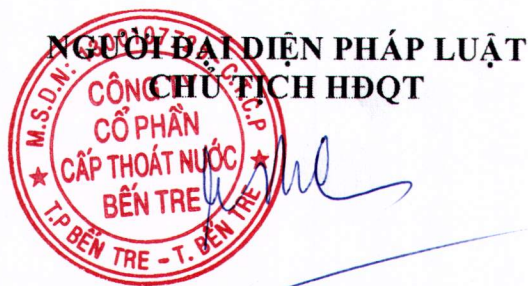 NGƯỜI ĐẠI DIỆN PHÁP LUẬT
CHỦ TỊCH HĐQT
M.S.D.N:
C.T.C.P
CÔNG TY
CỔ PHẦN
CẤP THOÁT NƯỚC
BẾN TRE
T.P BẾN TRE - T. BẾN TRE